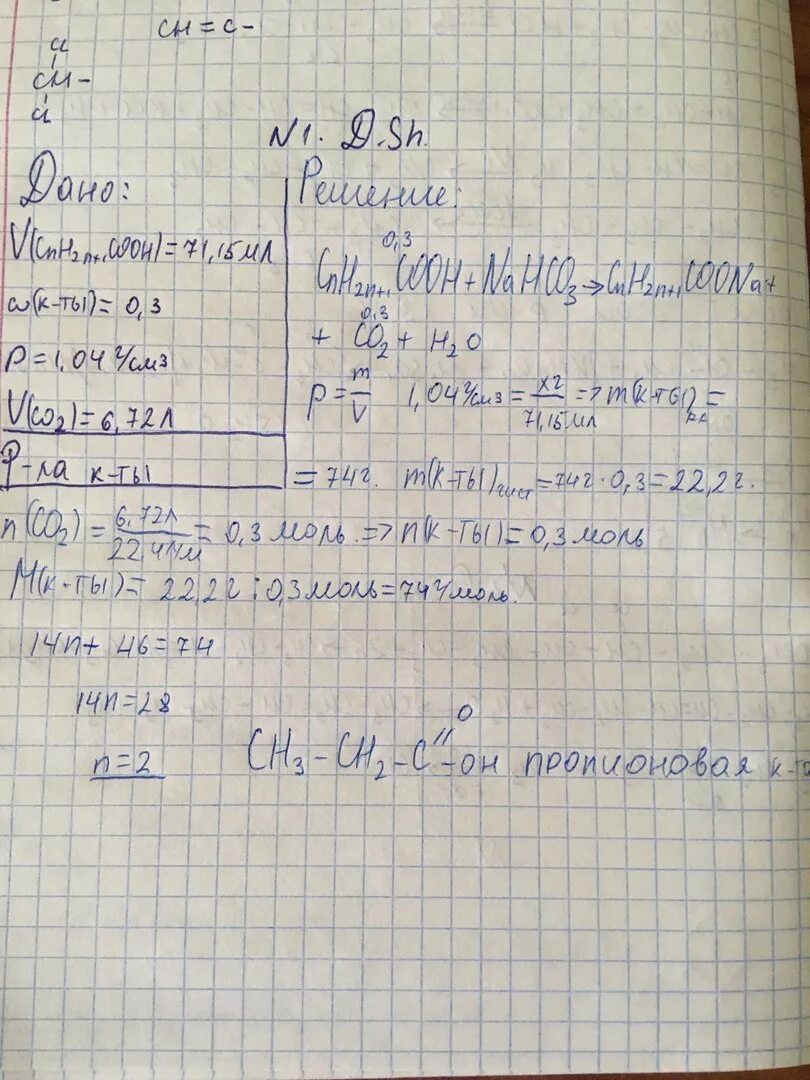 CH = C -
Cl
CH -
Cl
N 1. D.Sh.
Дано:
V(CnH2n+1COOH) = 71,15 мл
ω(к-ты) = 0,3
ρ = 1,04 г/см3
V(CO2) = 6,72 л
Ф-ла к-ты
Решение:
0,3
CnH2n+1COOH + NaHCO3 → CnH2n+1COONa +
0,3
+ CO2 + H2O
ρ = m/V 1,04 г/см3 = xг/71,15 мл => m(к-ты)р.р =
= 74 г. m(к-ты)чист = 74 г · 0,3 = 22,2 г.
n(CO2) = 6,72 л/22,4 л/м = 0,3 моль => n(к-ты) = 0,3 моль
M(к-ты) = 22,2 г : 0,3 моль = 74 г/моль.
14n + 46 = 74
14n = 28
n = 2
O
CH3 - CH2 - C - OH пропионовая к-та